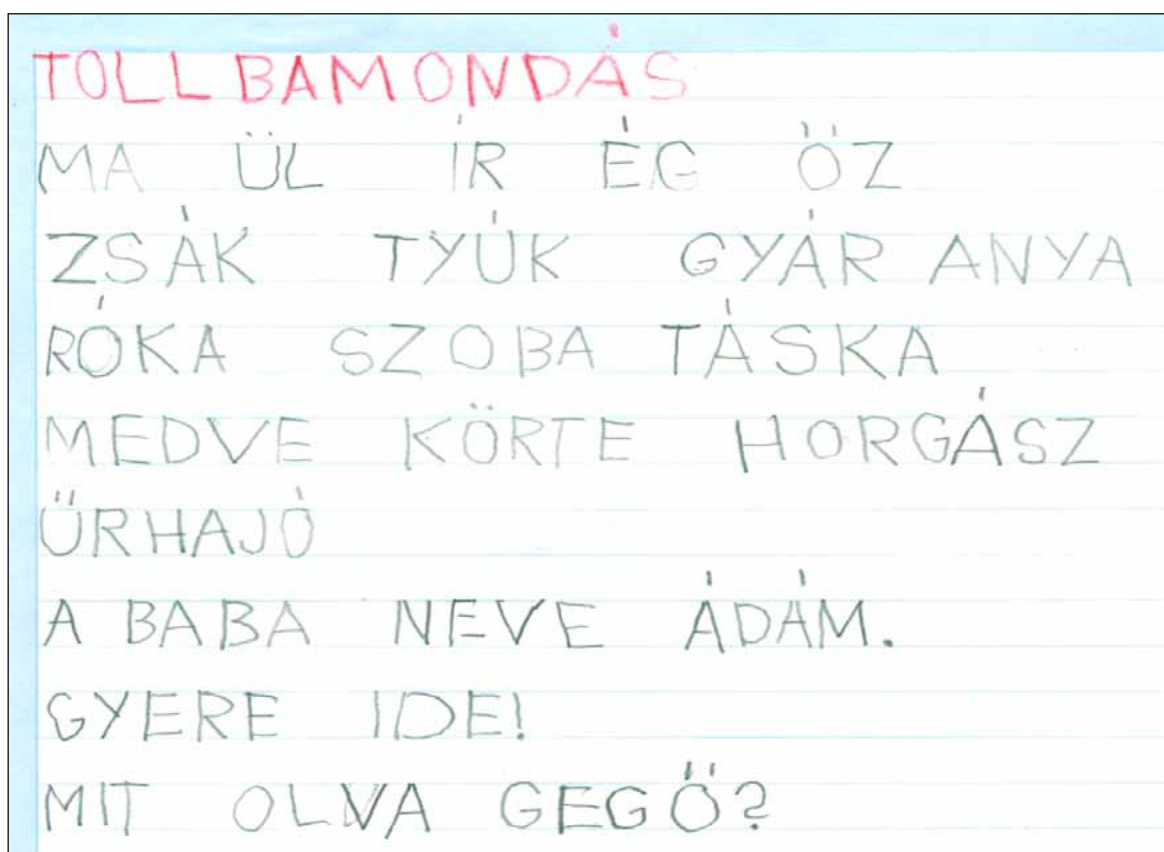 TOLLBAMONDÁS
MA ÜL ÍR ÉG ŐZ
ZSÁK TYÚK GYÁR ANYA
RÓKA SZOBA TÁSKA
MEDVE KÖRTE HORGÁSZ
ŰRHAJÓ
A BABA NEVE ÁDÁM.
GYERE IDE!
MIT OLVA GEGŐ?